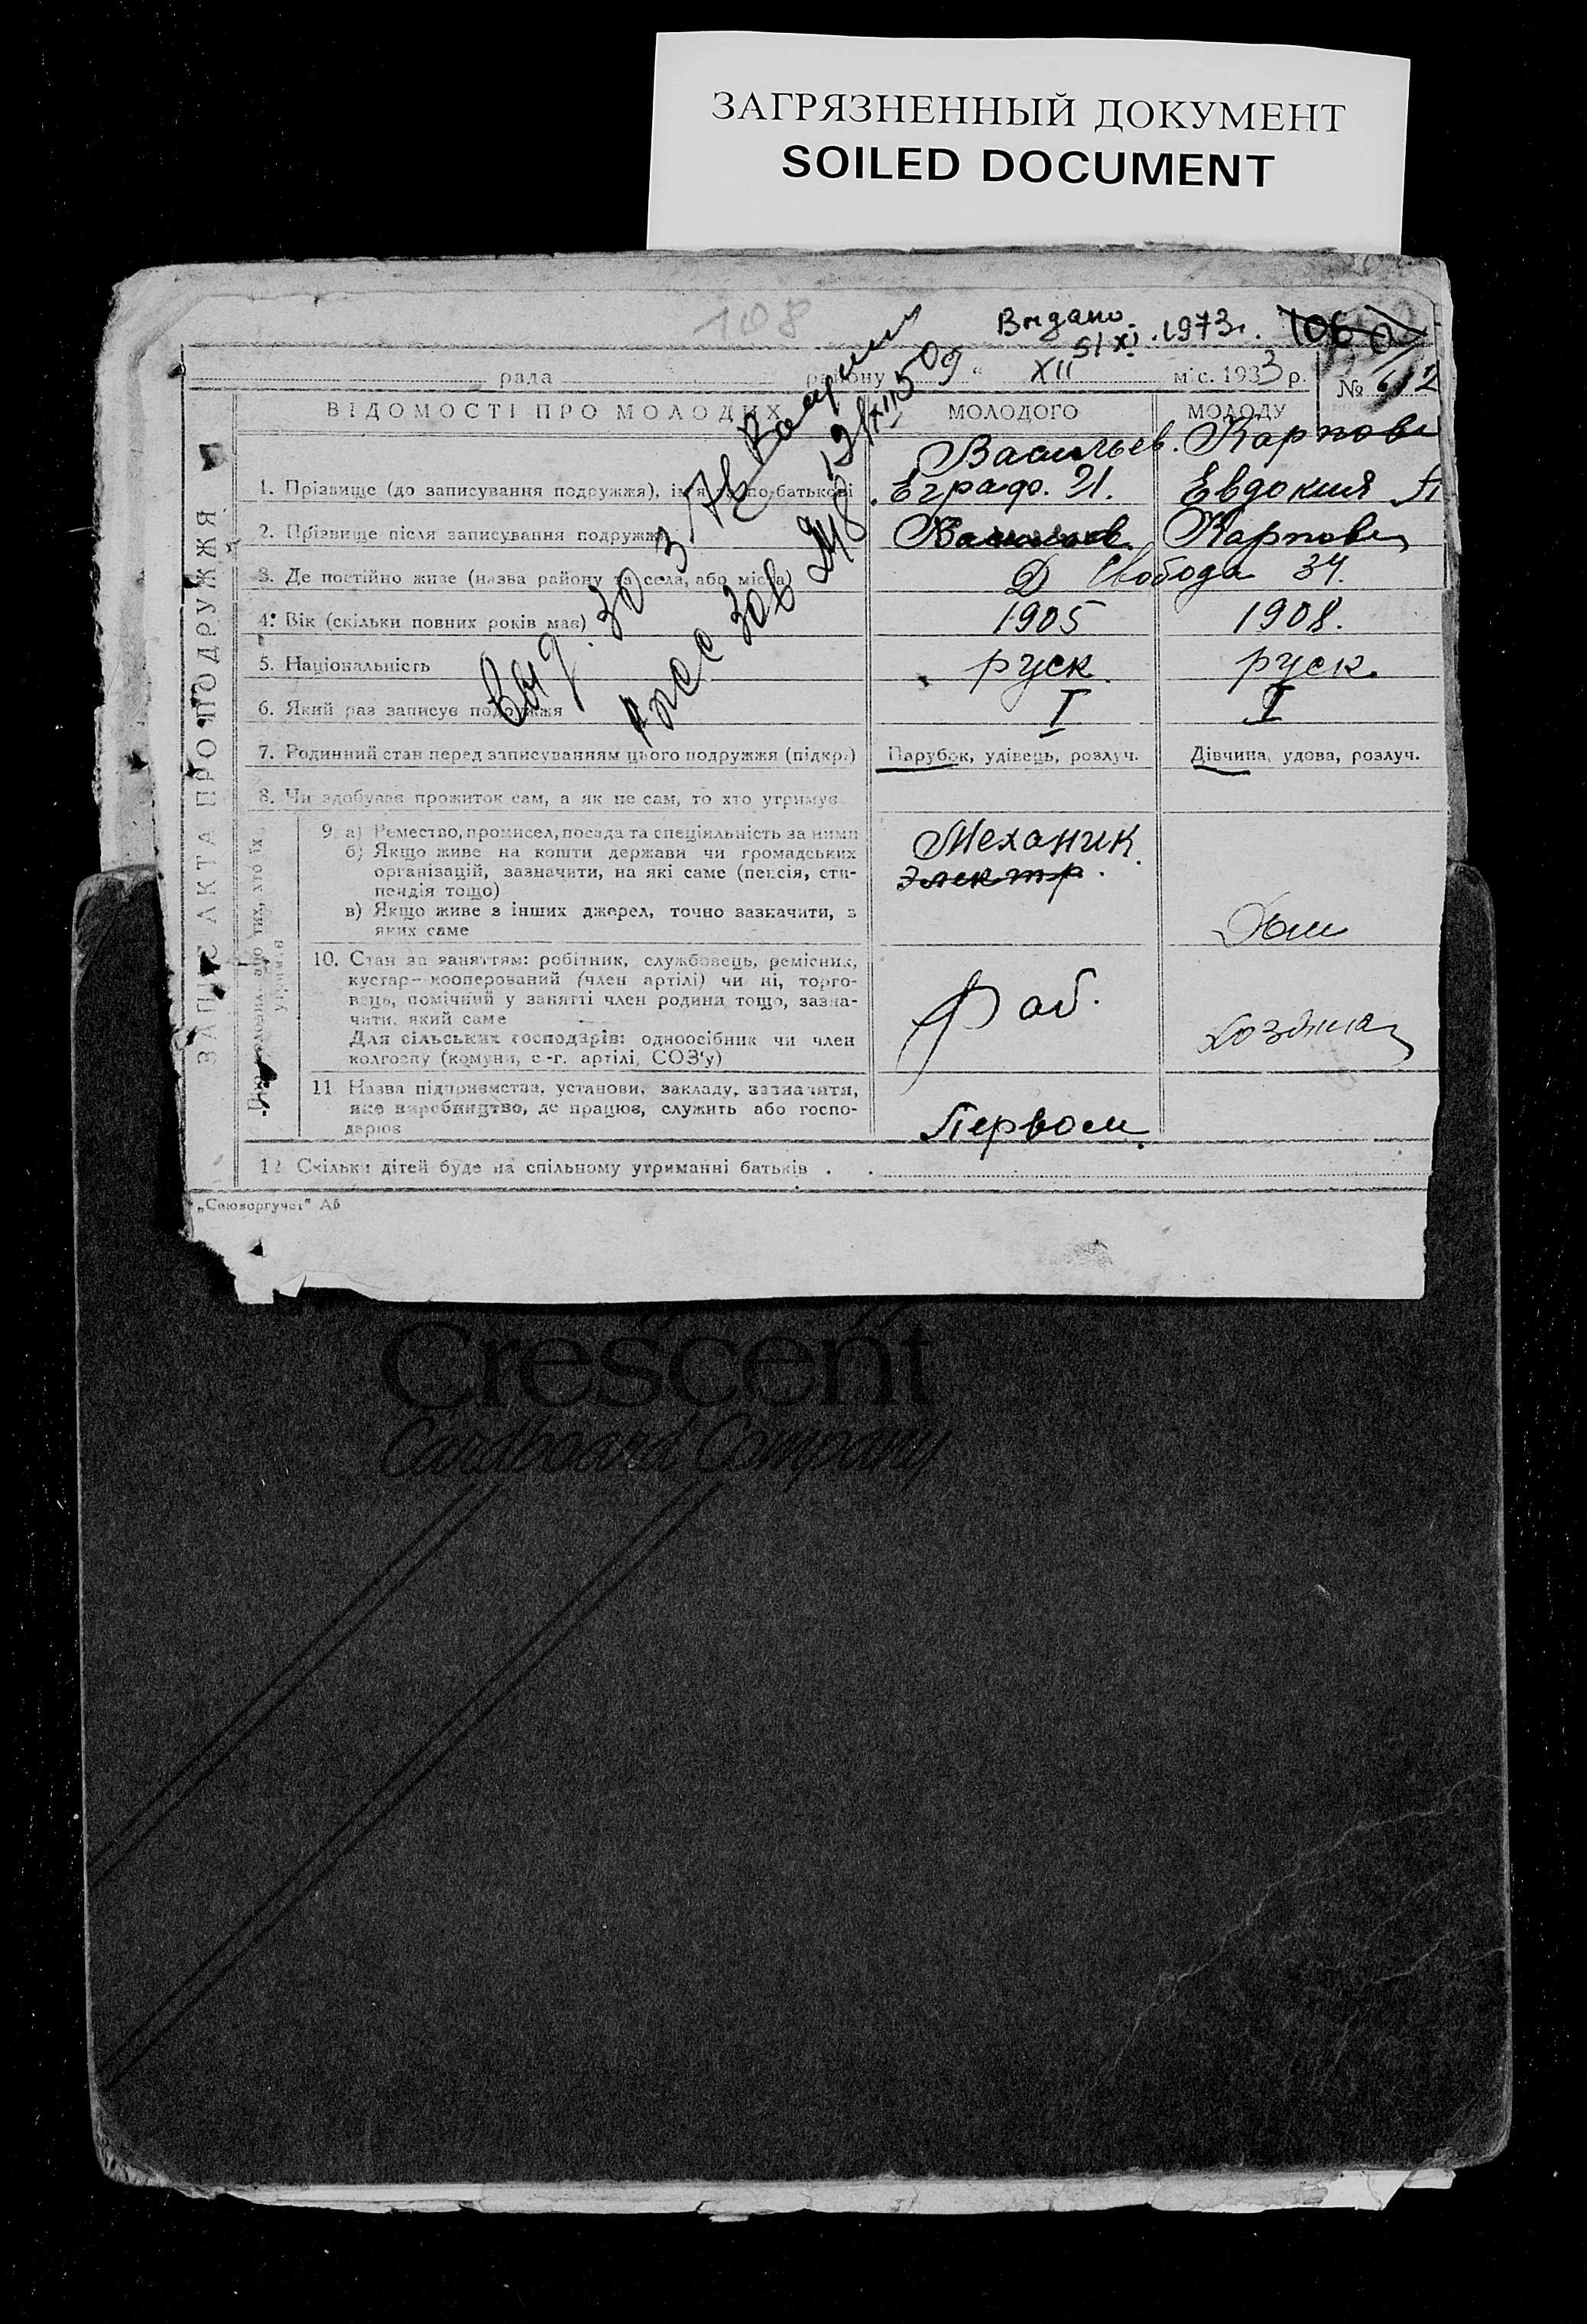 ЗАГРЯЗНЕННЫЙ ДОКУМЕНТ
SOILED DOCUMENT
108
Видано
1973
1060
рада району " XII міс. 1933 р. № 612
ВІДОМОСТІ ПРО МОЛОДИХ МОЛОДОГО МОЛОДУ
Васильев. Карпова
1. Прізвище (до записування подружжя), ім'я та по-батькові Еграф. И. Евдокия
2. Прізвище після записування подружжя Васильев Карпова
3. Де постійно живе (назва району та села, або міста) Д Свобода 34.
4. Вік (скільки повних років має) 1905 1908.
5. Національність руск. руск.
6. Який раз записує подружжя I I
7. Родинний стан перед записуванням цього подружжя (підкр.) Парубок, удівець, розлуч. Дівчина, удова, розлуч.
8. Чи здобуває прожиток сам, а як не сам, то хто утримує
9. а) Ремество, промисел, посада та спеціяльність за ними Механик
б) Якщо живе на кошти держави чи громадських электр.
організацій, зазначити, на які саме (пенсія, сти-
пендія тощо)
в) Якщо живе з інших джерел, точно зазначити, з
яких саме Дом
10. Стан за заняттям: робітник, службовець, ремісник,
кустар—кооперований (член артілі) чи ні, торго-
вець, помічний у занятті член родини тощо, зазна- Раб.
чити, який саме
Для сільських господарів: одноосібник чи член хозяйка
колгоспу (комуни, с.-г. артілі, СОЗ'у)
11. Назва підприємства, установи, закладу, зазначити,
яке виробництво, де працює, служить або госпо- Первом.
дарює
12. Скільки дітей буде на спільному утриманні батьків . .
„Союзоргучет" Аб
ЗАПИС АКТА ПРО ПОДРУЖЖЯ
Выд. 30 3 76
Crescent
Cardboard Company